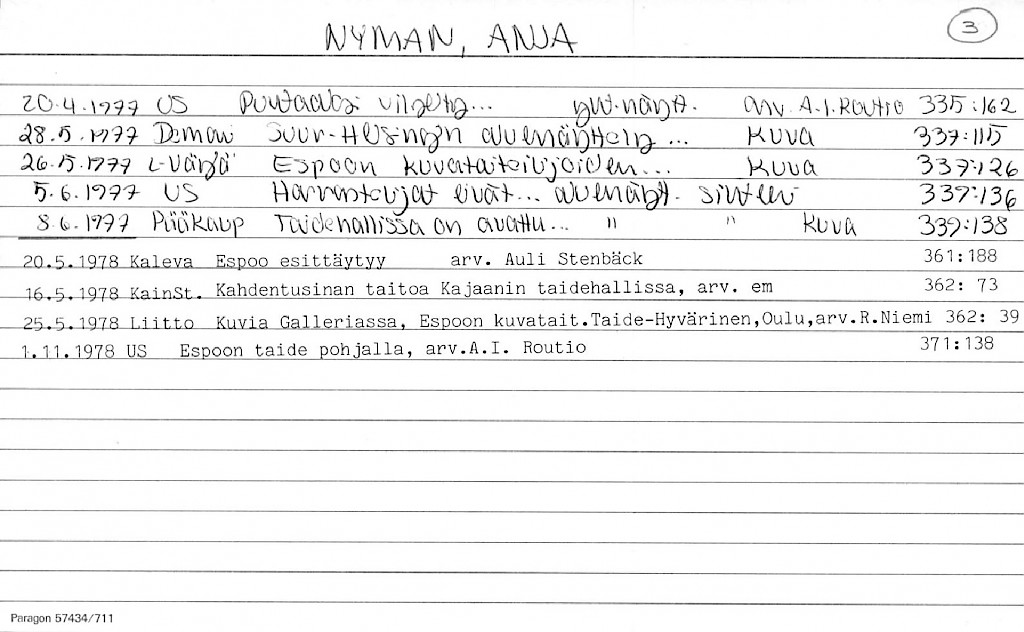 3
NYMAN, ANJA
20.4.1977 US Puutaaksi viljelty... yht.näytt. arv. A-I. Routio 335:162
28.5.1977 Deman Suur-Helsingin aluenäyttely... Kuva 337:115
26.5.1977 L-Väylä Espoon kuvataiteilijoiden... Kuva 337:126
5.6.1977 US Harrastelijat eivät... aluenäytt. sitten 339:136
8.6.1977 Pääkaup Taidehallissa on avattu... " " Kuva 339:138
20.5.1978 Kaleva Espoo esittäytyy arv. Auli Stenbäck 361:188
16.5.1978 KainSt. Kahdentusinan taitoa Kajaanin taidehallissa, arv. em 362: 73
25.5.1978 Liitto Kuvia Galleriassa, Espoon kuvatait.Taide-Hyvärinen,Oulu,arv.R.Niemi 362: 39
1.11.1978 US Espoon taide pohjalla, arv.A.I. Routio 371:138
Paragon 57434/711